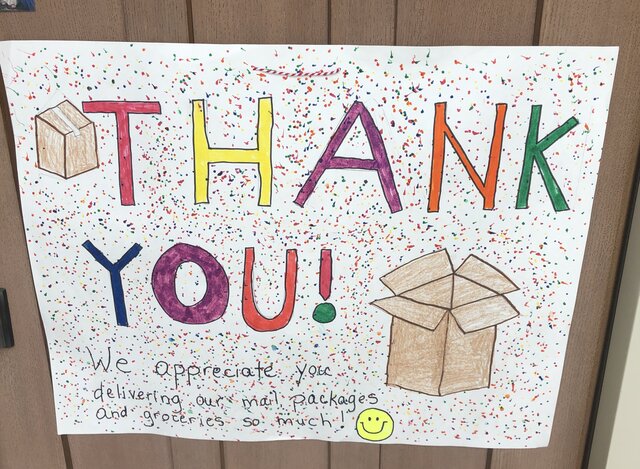 THANK
YOU!
We appreciate you
delivering our mail packages
and groceries so much!